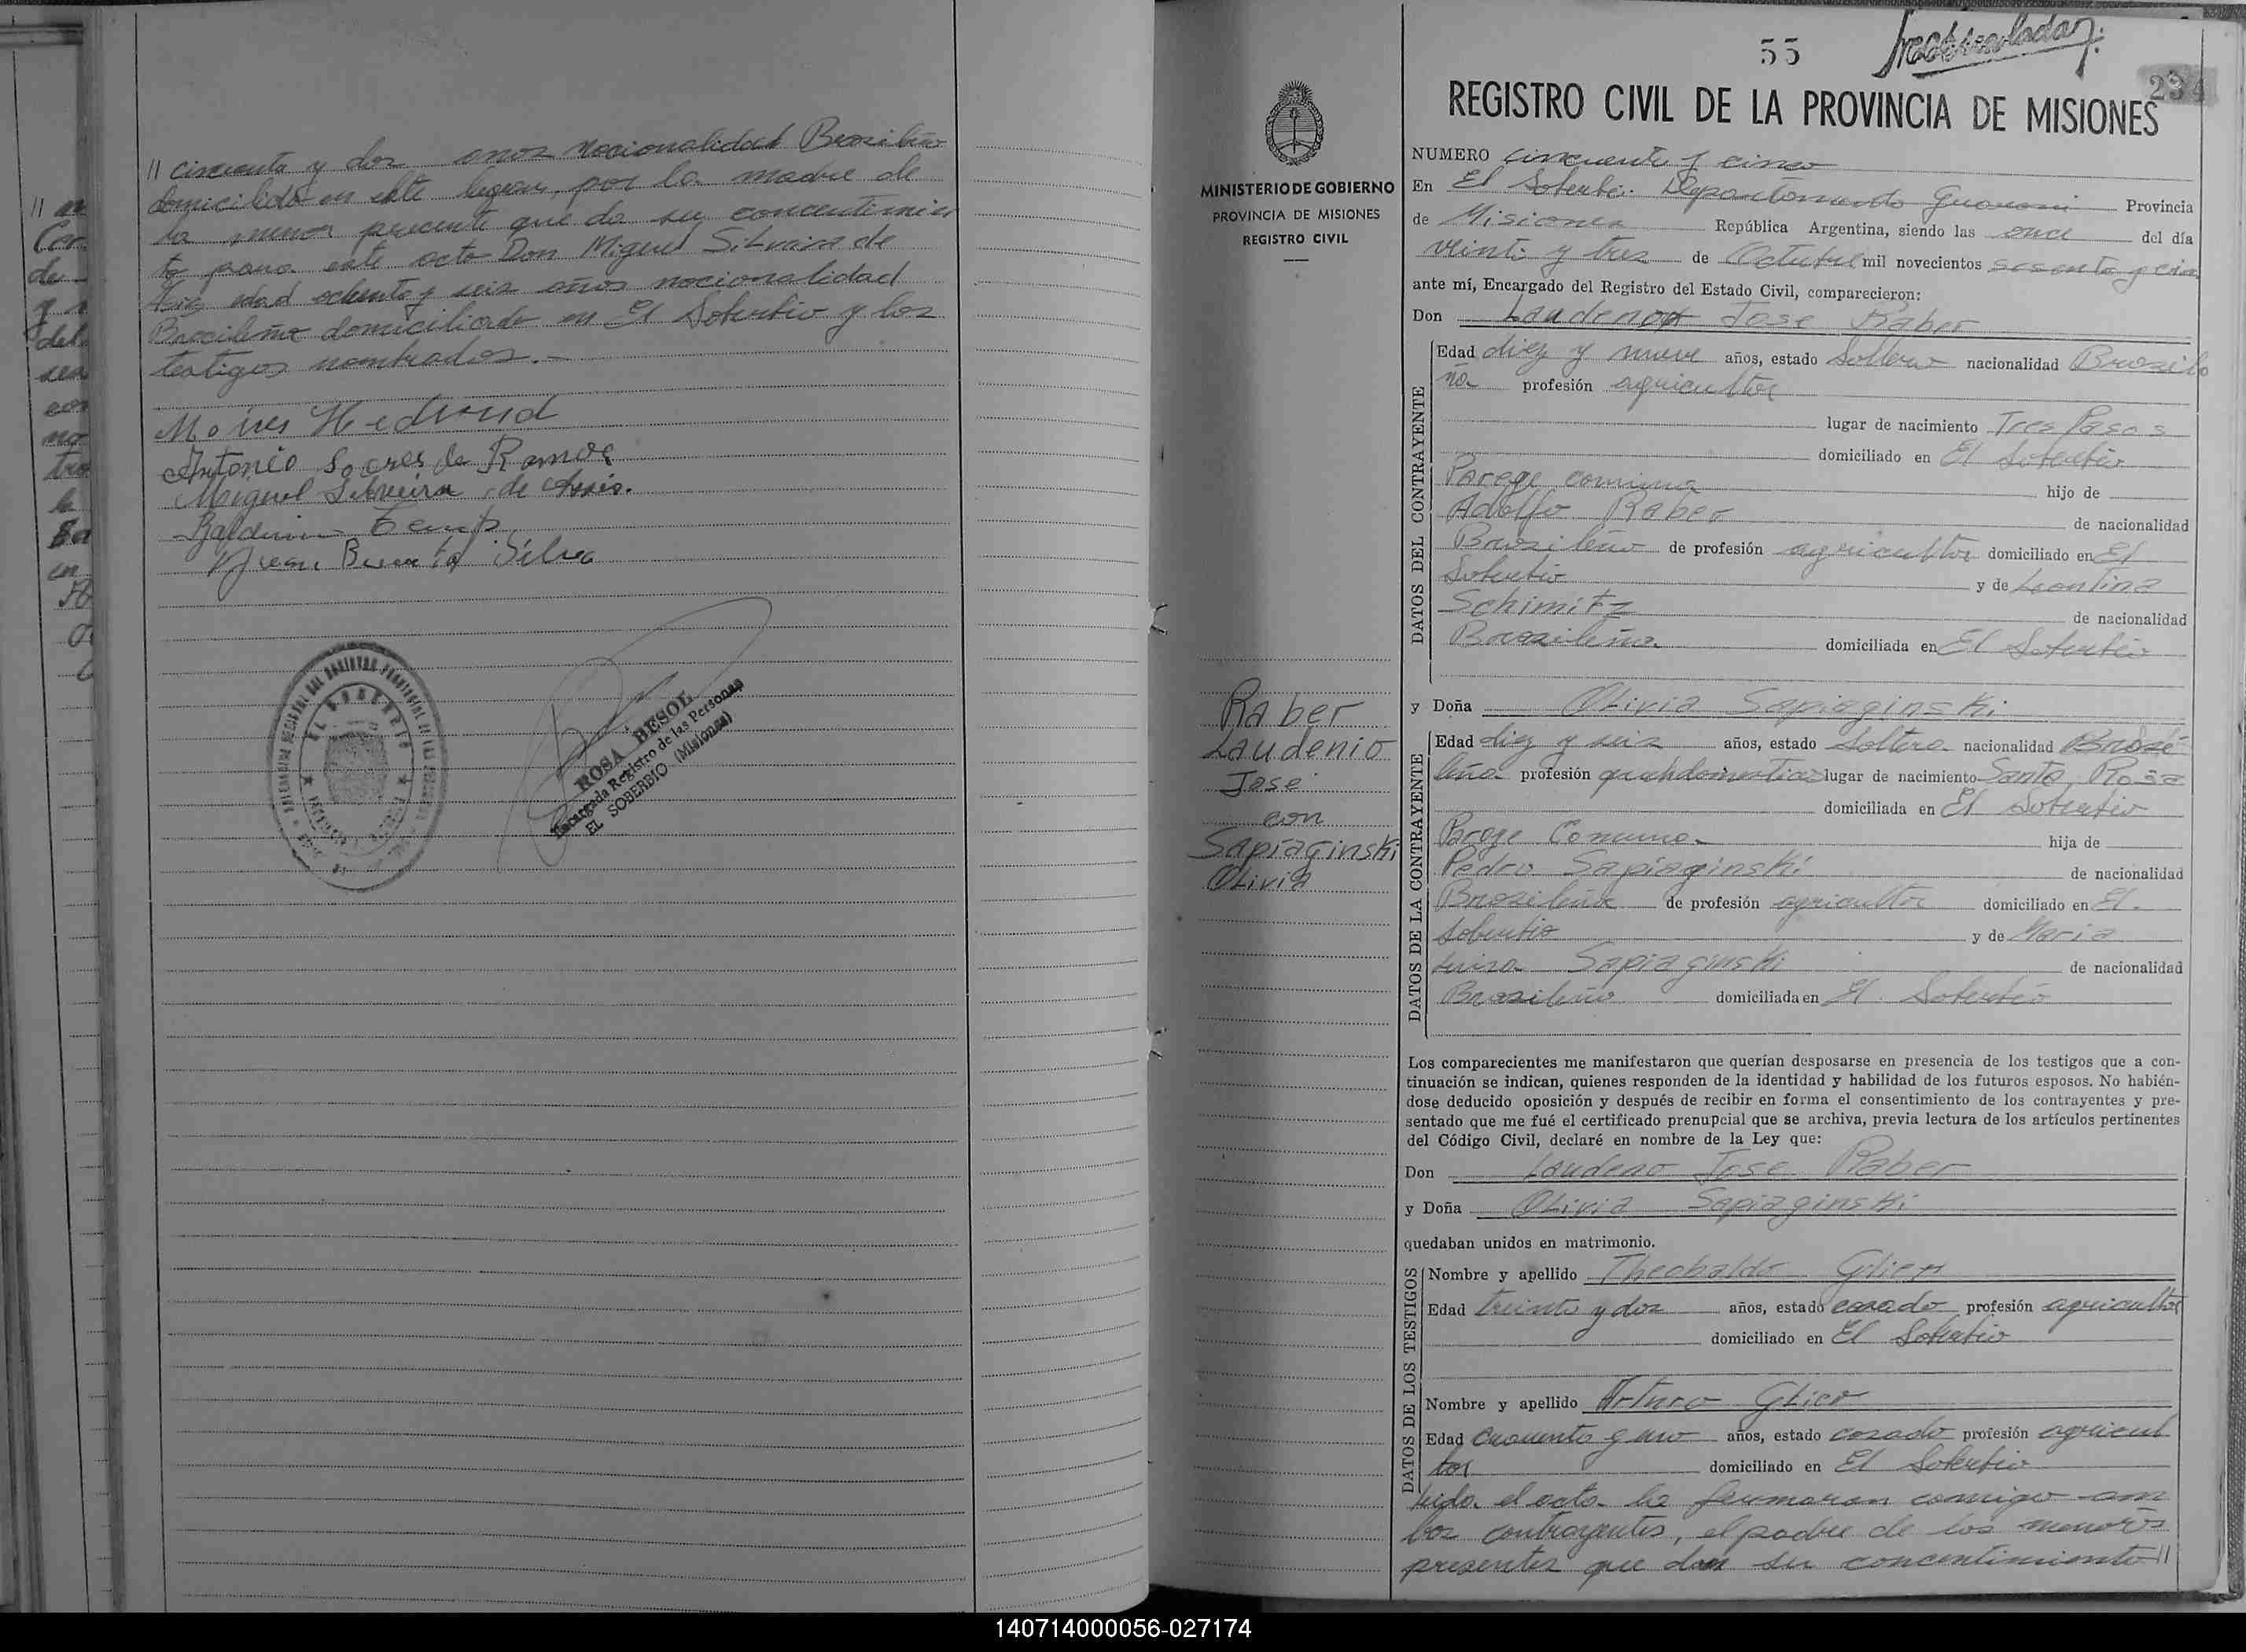 // cincuenta y dos años nacionalidad Brasileño
domicilido en este lugar, por la madre de
la menor presente que da su concentimien
to para este acto Don Miguel Silveira de
Asis edad ochenta y seis años nacionalidad
Brasileño domiciliado en El Soberbio y los
testigos nombrados.-
Antonio Soares de Ramos
Miguel Silveira de Assis.
Silva
ROSA BESOL
Encargada Registro de las Personas
EL SOBERBIO (Misiones)
55
234
REGISTRO CIVIL DE LA PROVINCIA DE MISIONES
MINISTERIO DE GOBIERNO
PROVINCIA DE MISIONES
REGISTRO CIVIL
Raber
Laudenio
Jose
con
Sapiaginski
Olivia
NUMERO cincuenta y cinco
En El Soberbio. Departamento Guarani Provincia
de Misiones República Argentina, siendo las once del día
veinti y tres de Octubre mil novecientos sesenta y cin
ante mí, Encargado del Registro del Estado Civil, comparecieron:
Don Jose Raber
DATOS DEL CONTRAYENTE
Edad diez y nueve años, estado Soltero nacionalidad Brasile
ña profesión agricultor
lugar de nacimiento Tres Pasos
domiciliado en El Soberbio
Parage comuna hijo de
Adolfo Raber de nacionalidad
Brasileño de profesión agricultor domiciliado en El
Soberbio y de Leontina
Schimitz de nacionalidad
Brasileña domiciliada en El Soberbio
y Doña Olivia Sapiaginski
DATOS DE LA CONTRAYENTE
Edad diez y seis años, estado Soltera nacionalidad Brasi
leña profesión lugar de nacimiento Santa Rosa
domiciliada en El Soberbio
Parage Comuna hija de
Pedro Sapiaginski de nacionalidad
Brasileña de profesión agricultor domiciliado en El.
Soberbio y de Maria
Luisa Sapiaginski de nacionalidad
Brasileña domiciliada en El Soberbio
Los comparecientes me manifestaron que querían desposarse en presencia de los testigos que a con-
tinuación se indican, quienes responden de la identidad y habilidad de los futuros esposos. No habién-
dose deducido oposición y después de recibir en forma el consentimiento de los contrayentes y pre-
sentado que me fué el certificado prenupcial que se archiva, previa lectura de los artículos pertinentes
del Código Civil, declaré en nombre de la Ley que:
Don Laudeno Jose Raber
y Doña Olivia Sapiaginski
quedaban unidos en matrimonio.
DATOS DE LOS TESTIGOS
Nombre y apellido Theobaldo
Edad treinta y dos años, estado casado profesión agricultor
domiciliado en El Soberbio
Nombre y apellido Arturo
Edad cuarenta y uno años, estado casado profesión agricul
tor domiciliado en El Soberbio
leida el acta la firmaron comigo am
bos contrayentes, el padre de los menores
presentes que dan su concentimiento //
140714000056-027174